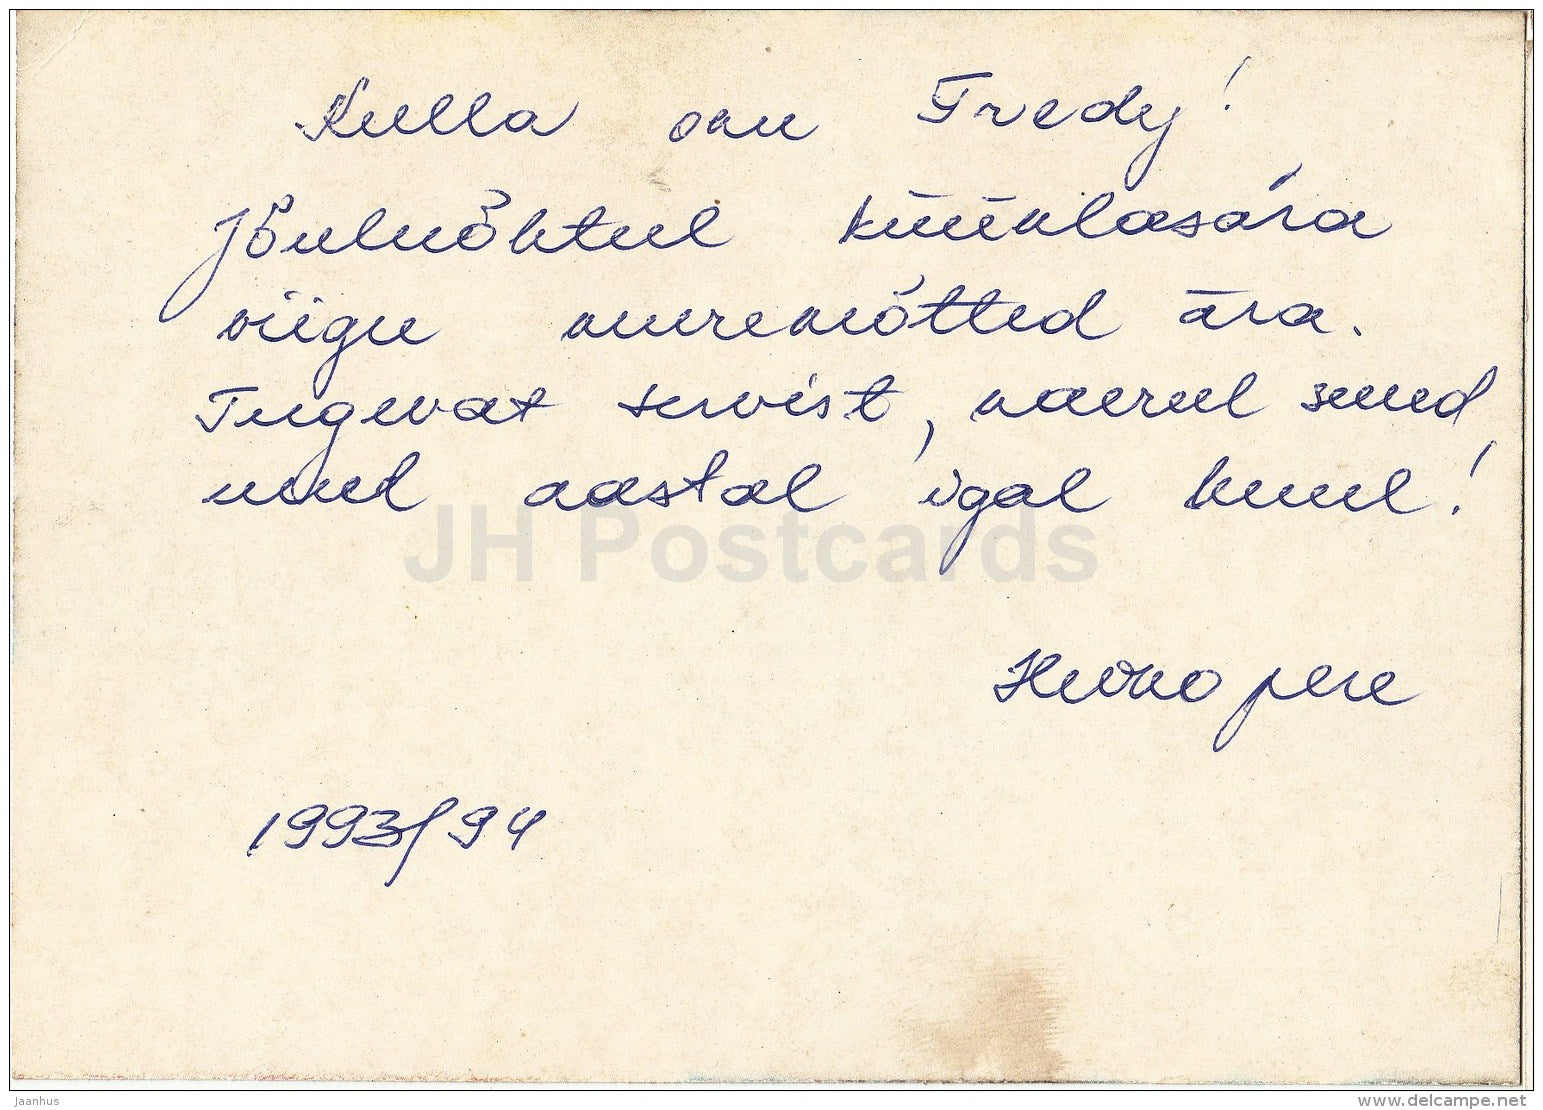 Kulla onu Fredy!
Jõuluõhtul küünlasära
viigu muremõtted ära.
Tugevat tervist, naerul suud
uuel aastal igal kuul!
JH Postcards
pere
1993/94
Jaanhus
www.delcampe.net